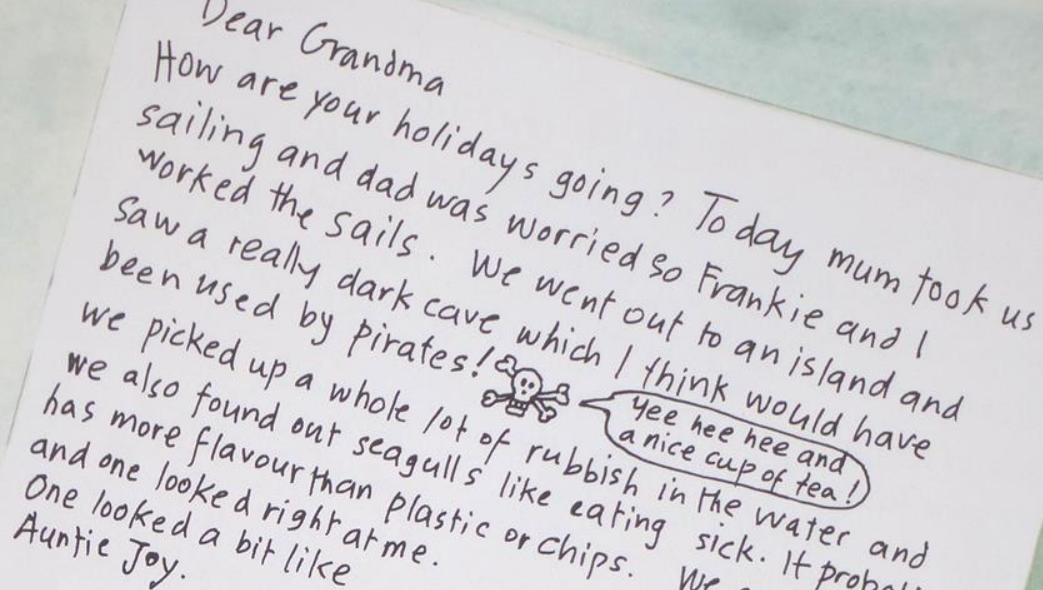 Dear Grandma
How are your holidays going? Today mum took us
sailing and dad was worried so Frankie and I
worked the sails. We went out to an island and
saw a really dark cave which I think would have
been used by pirates!
yee hee hee and
a nice cup of tea!
We picked up a whole lot of rubbish in the water and
we also found out seagulls like eating sick. It
has more flavour than plastic or chips. We
and one looked right at me.
One looked a bit like
Auntie Joy.